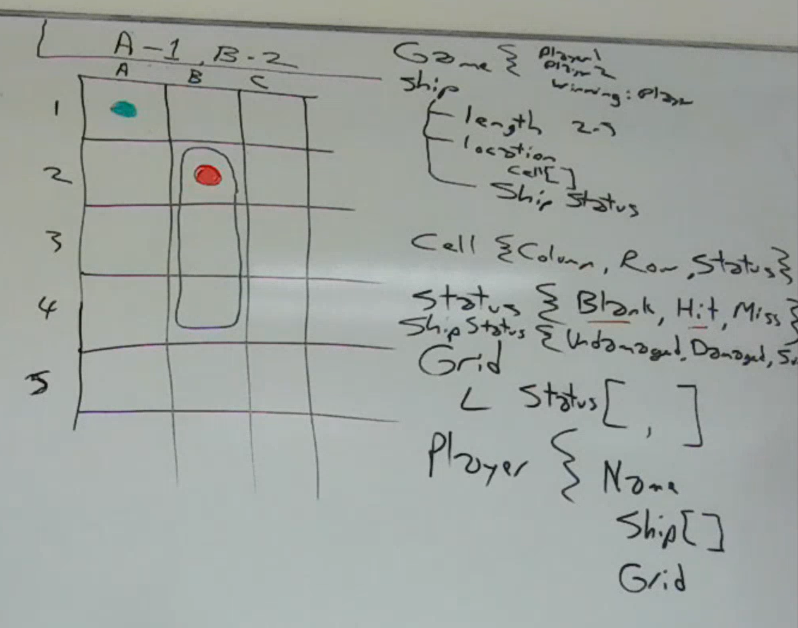 A-1, B-2
A B C
1
2
3
4
5
Game { Player 1
Player 2
winning: Player
Ship
length 2-5
location
Cell[]
Ship Status
Cell {Column, Row, Status}
Status { Blank, Hit, Miss }
Ship Status { Undamaged, Damaged,
Grid
L Status[ , ]
Player { Name
Ship[]
Grid